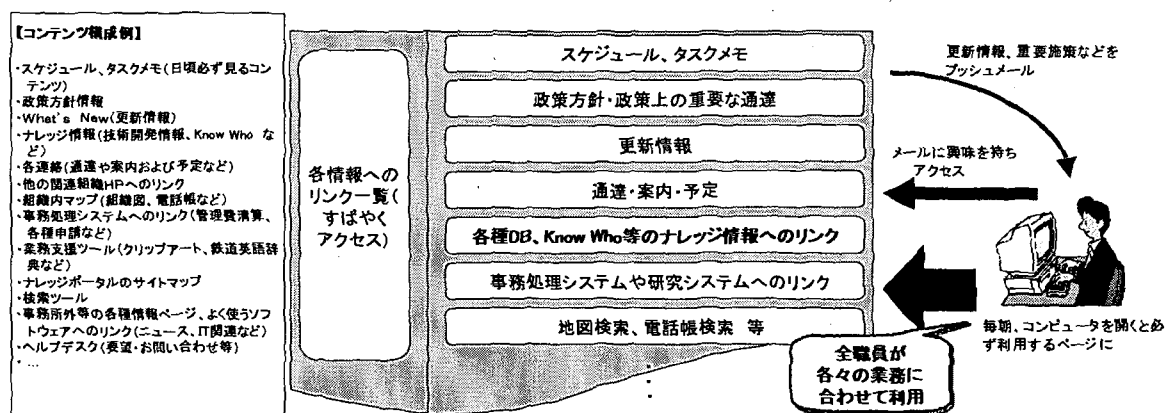 【コンテンツ構成例】
・スケジュール、タスクメモ(日頃必ず見るコン
テンツ)
・政策方針情報
・What's New(更新情報)
・ナレッジ情報(技術開発情報、Know Who な
ど)
・各連絡(通達や案内および予定など)
・他の関連組織HPへのリンク
・組織内マップ(組織図、電話帳など)
・事務処理システムへのリンク(管理費清算、
各種申請など)
・業務支援ツール(クリップアート、鉄道英語辞
典など)
・ナレッジポータルのサイトマップ
・検索ツール
・事務所外等の各種情報ページ、よく使うソフ
トウェアへのリンク(ニュース、IT関連など)
・ヘルプデスク(要望・お問い合わせ等)
・…
各情報への
リンク一覧(
すばやく
アクセス)
スケジュール、タスクメモ
政策方針・政策上の重要な通達
更新情報
通達・案内・予定
各種DB、Know Who等のナレッジ情報へのリンク
事務処理システムや研究システムへのリンク
地図検索、電話帳検索 等
全職員が
各々の業務に
合わせて利用
更新情報、重要施策などを
プッシュメール
メールに興味を持ち
アクセス
毎朝、コンピュータを開くと必
ず利用するページに